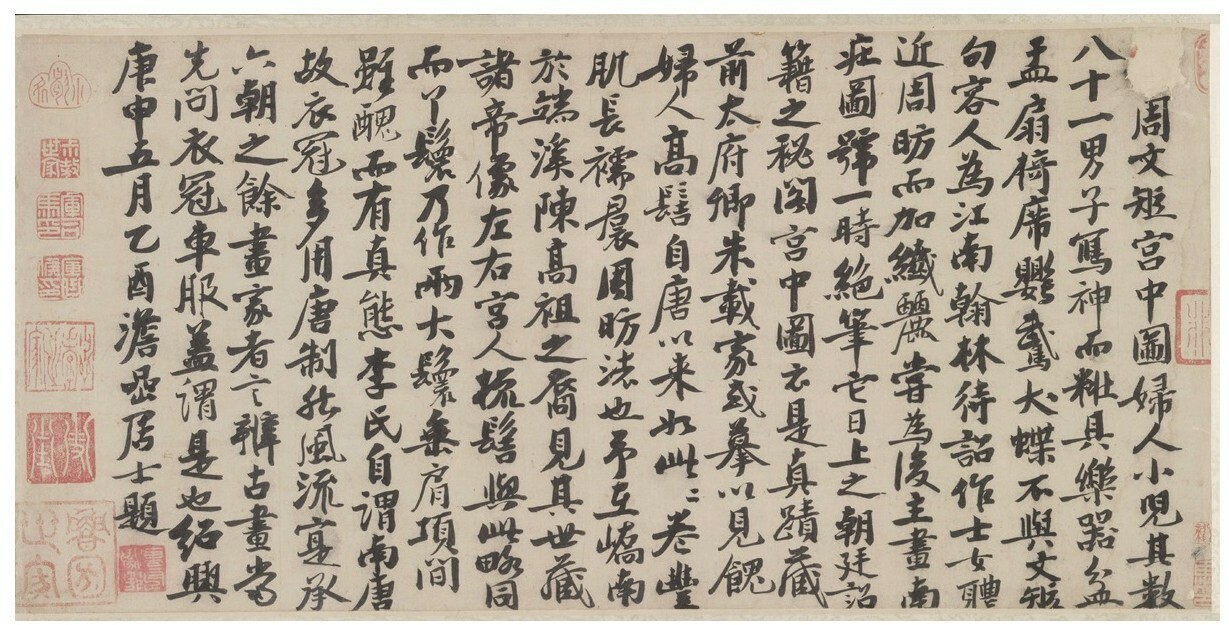 周文矩宮中圖婦人小兒其數
八十一男子寫神而粧具樂器盆
盂扇椅席鸚鵡犬蝶不與文矩
句容人為江南翰林待詔作士女體
近周昉而加纖麗嘗為後主畫南
莊圖號一時絕筆它日上之朝廷詔
籍之秘閣宮中圖云是真蹟藏
前太府卿朱載家或摹以見餽
婦人高髻自唐以來如此〻卷豐
肌長襦裠周昉法也予在嶠南
於端溪陳高祖之裔見其世藏
諸帝像左右宮人梳髻與此略同
而丫鬟乃作兩大鬟垂肩項間
雖醜而有真態李氏自謂南唐
故衣冠多用唐制然風流寔承
六朝之餘畫家者言辨古畫當
先問衣冠車服蓋謂是也紹興
庚申五月乙酉澹喦居士題